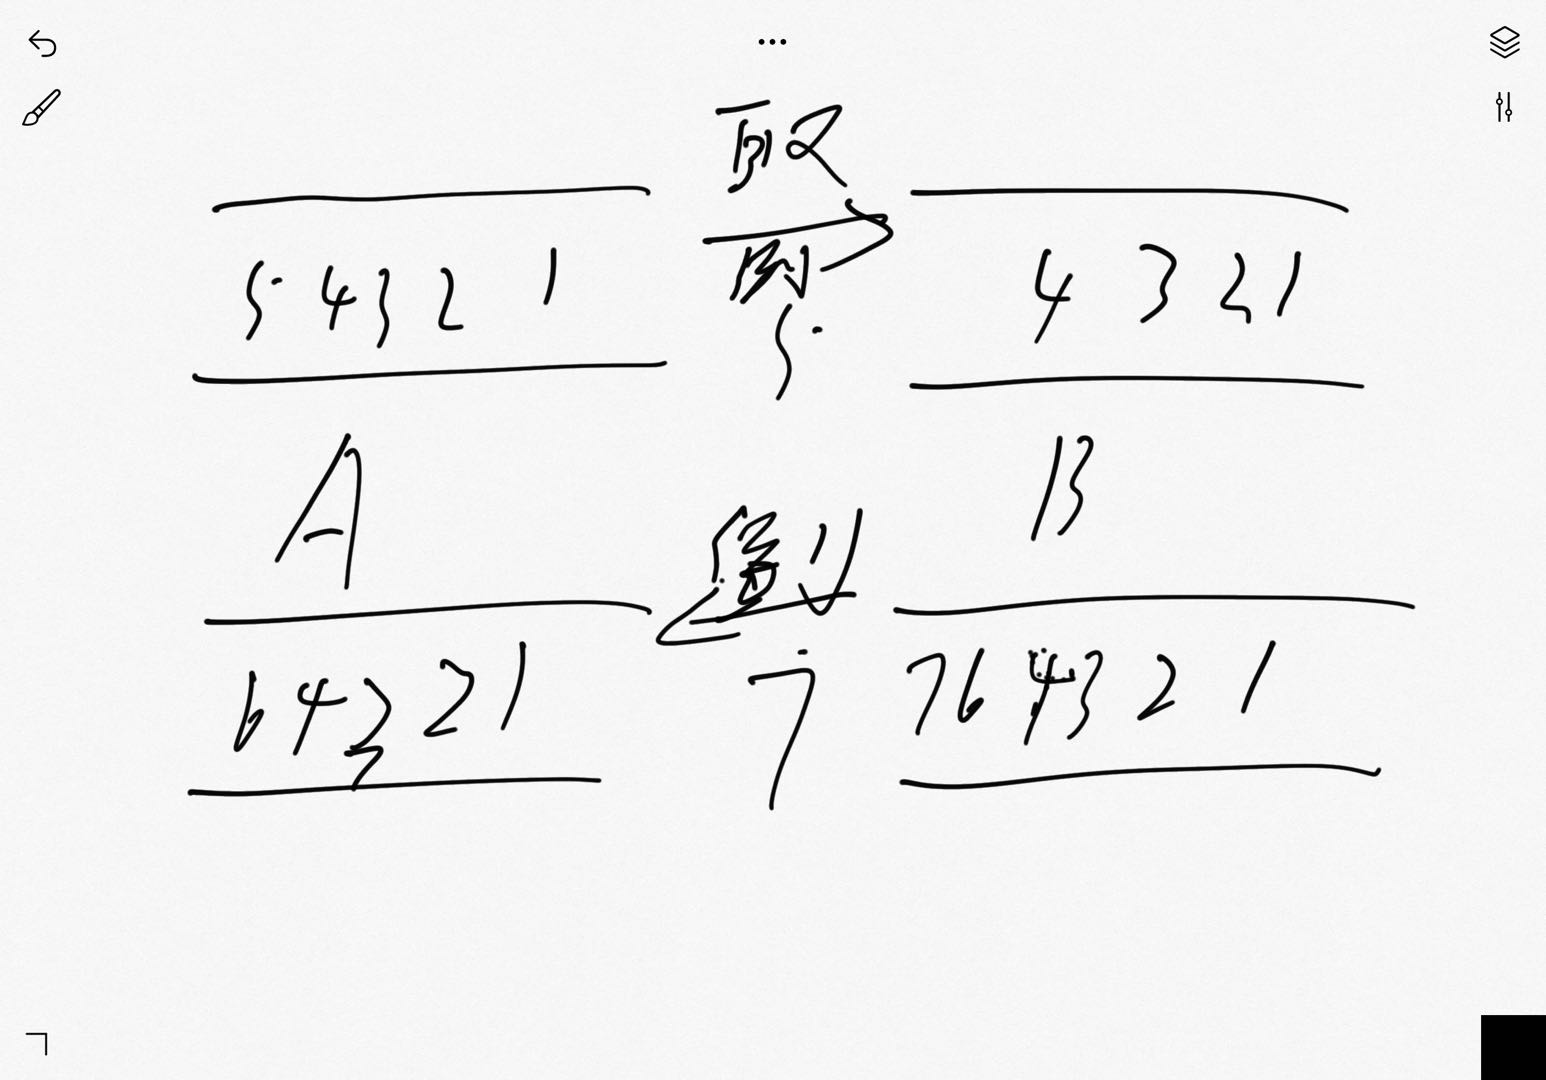 取
5 4 3 2 1
4 3 2 1
5
A
B
6 4 3 2 1
7
7 6 4 3 2 1